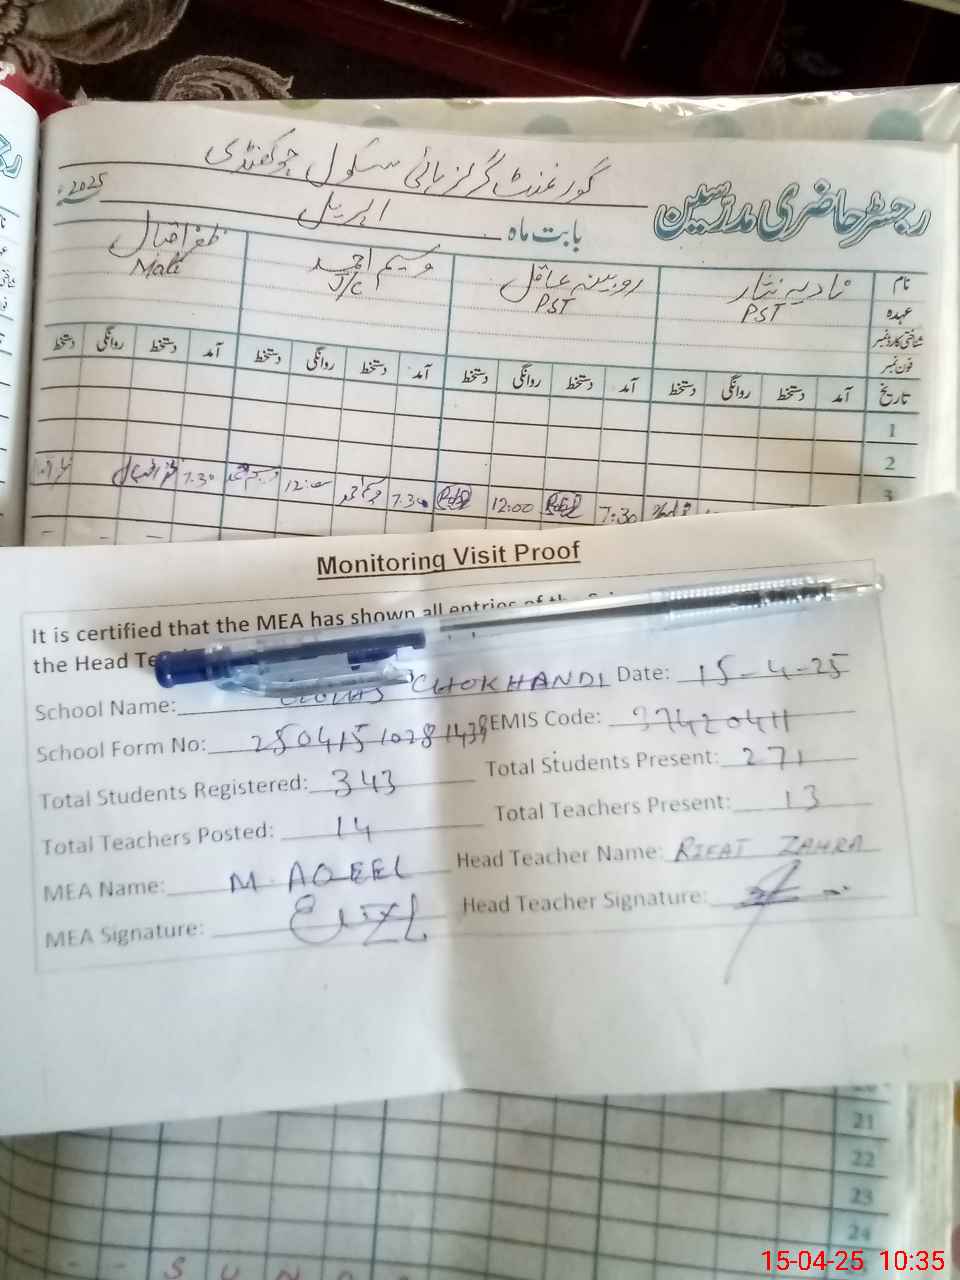 گورنمنٹ گرلز ہائی سکول چوکھنڈی
رجسٹر حاضری مدرسین
بابت ماہ اپریل سنہ 2025ء
نام نادیہ نثار روبینہ عاقل وسیم احمد ظفر اقبال
عہدہ PST PST J/C Mali
شناختی کارڈ نمبر
فون نمبر
تاریخ آمد دستخط روانگی دستخط آمد دستخط روانگی دستخط آمد دستخط روانگی دستخط آمد دستخط روانگی دستخط
1
2
3 7:30 12:00 7:30 وسیم احمد 12:00 وسیم احمد 7:30 ظفر اقبال
Monitoring Visit Proof
It is certified that the MEA has shown all entries of the
the Head
School Name: CHOKHANDI Date: 15-4-25
School Form No: EMIS Code: 37420411
Total Students Registered: 343 Total Students Present: 271
Total Teachers Posted: 14 Total Teachers Present: 13
MEA Name: M. AQEEL Head Teacher Name: RIFAT ZAHRA
MEA Signature: Head Teacher Signature:
21
22
23
24
S U N D
15-04-25 10:35